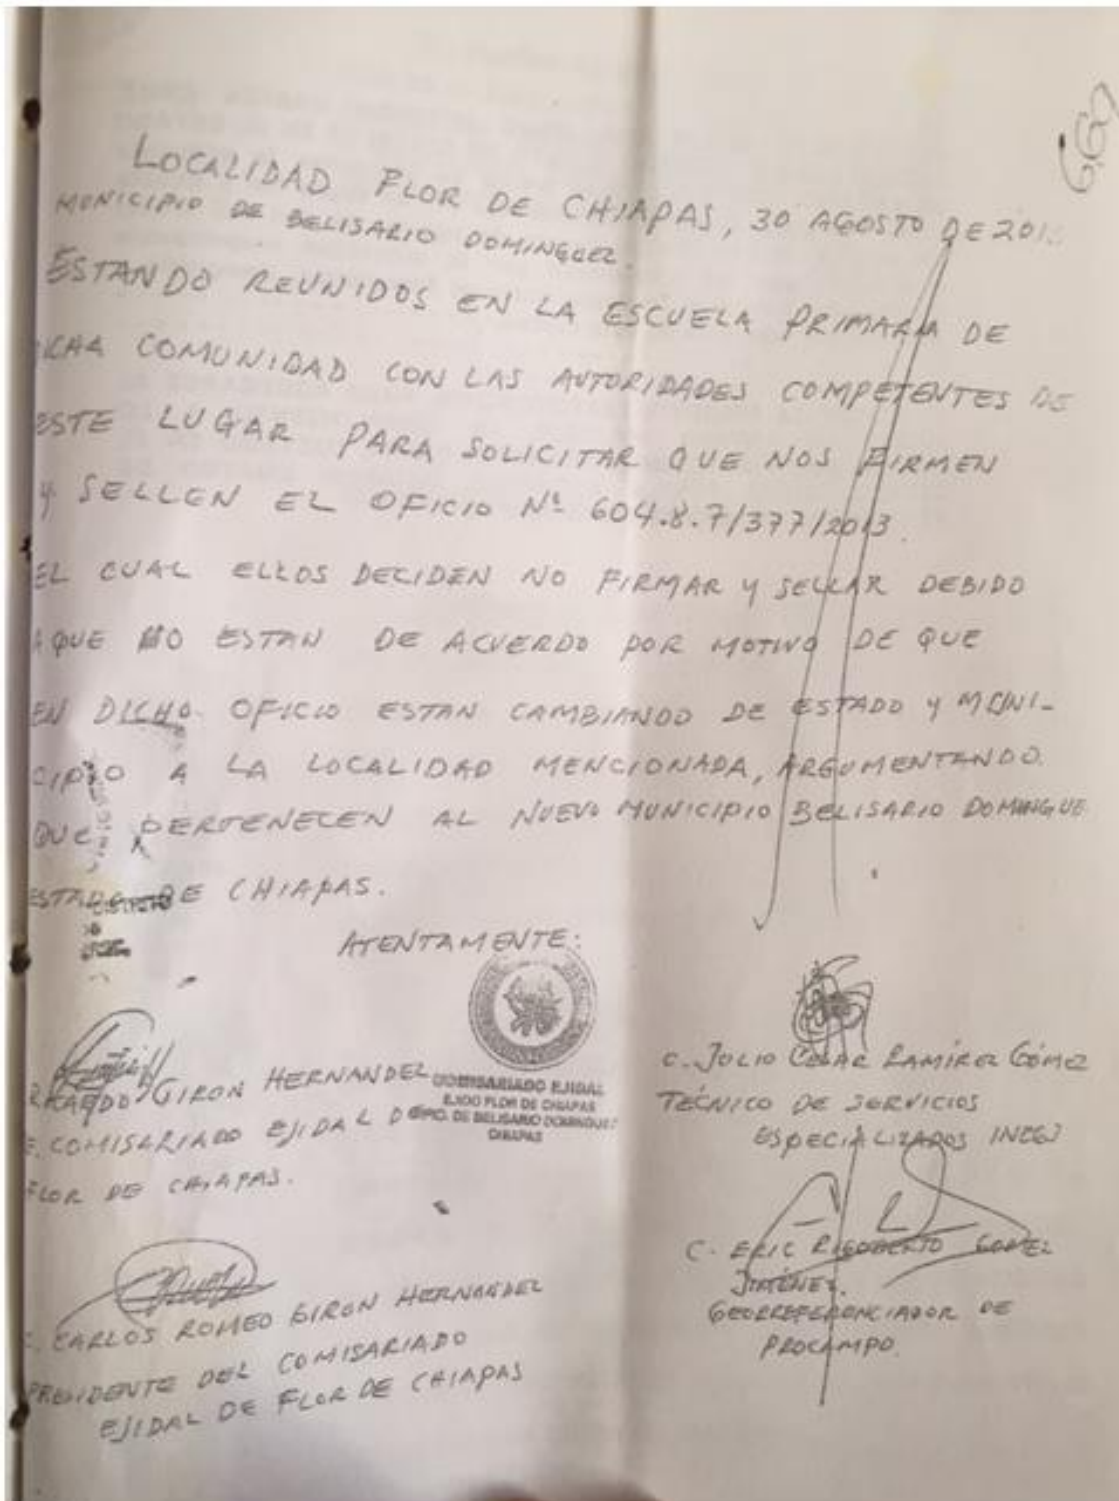 667
LOCALIDAD FLOR DE CHIAPAS, 30 AGOSTO DE 201
MUNICIPIO DE BELISARIO DOMINGUEZ.
ESTANDO REUNIDOS EN LA ESCUELA PRIMARIA DE
ICHA COMUNIDAD CON LAS AUTORIDADES COMPETENTES DE
ESTE LUGAR PARA SOLICITAR QUE NOS FIRMEN
Y SELLEN EL OFICIO Nº 604.8.7/377/2013.
EL CUAL ELLOS DECIDEN NO FIRMAR Y SELLAR DEBIDO
AQUE NO ESTAN DE ACUERDO POR MOTIVO DE QUE
EN DICHO OFICIO ESTAN CAMBIANDO DE ESTADO Y MUNI-
CIPIO A LA LOCALIDAD MENCIONADA, ARGUMENTANDO
QUE PERTENECEN AL NUEVO MUNICIPIO BELISARIO DOMINGUE
ESTADO DE CHIAPAS.
ATENTAMENTE:
RICARDO GIRON HERNANDEZ
COMISARIADO EJIDAL D
FLOR DE CHIAPAS.
COMISARIADO EJIDAL
EJIDO FLOR DE CHIAPAS
MPIO. DE BELISARIO DOMINGUEZ
CHIAPAS
C. CARLOS ROMEO GIRON HERNANDEZ
PRESIDENTE DEL COMISARIADO
EJIDAL DE FLOR DE CHIAPAS
C. JULIO CESAR RAMÍREZ GÓMEZ
TÉCNICO DE SERVICIOS
ESPECIALIZADOS INEGI
C. ERIC RIGOBERTO GOMEZ
JIMÉNEZ.
GEORREFERENCIADOR DE
PROCAMPO.